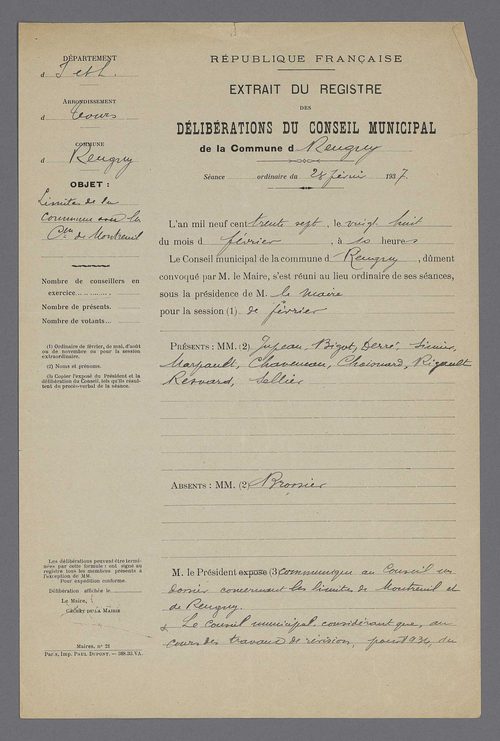 DÉPARTEMENT
d I et L.
ARRONDISSEMENT
d Tours
COMMUNE
d Reugny
OBJET :
Limites de la
Commune sur la
Cne de Montreuil
Nombre de conseillers en
exercice
Nombre de présents.
Nombre de votants
(1) Ordinaire de février, de mai, d'août
ou de novembre ou pour la session
extraordinaire.
(2) Noms et prénoms.
(3) Copier l'exposé du Président et la
délibération du Conseil, tels qu'ils résul-
tent du procès-verbal de la séance.
Les délibérations peuvent être termi-
nées par cette formule : ont signé au
registre tous les membres présents à
l'exception de MM.
Pour expédition conforme.
Délibération affichée le
Le Maire,
CACHET DE LA MAIRIE
Maires, n° 21
Paris, Imp. PAUL DUPONT. — 588.35.VA.
RÉPUBLIQUE FRANÇAISE
EXTRAIT DU REGISTRE
DES
DÉLIBÉRATIONS DU CONSEIL MUNICIPAL
de la Commune d Reugny
Séance ordinaire du 28 février 1937.
L'an mil neuf cent trente sept, le vingt huit
du mois d février, à 10 heures
Le Conseil municipal de la commune d Reugny, dûment
convoqué par M. le Maire, s'est réuni au lieu ordinaire de ses séances,
sous la présidence de M. le maire
pour la session (1). de février
PRÉSENTS : MM. (2) Bigot, Derré,
Marpault, Chaveneau, Rigault
Renvard, Sellier
ABSENTS : MM. (2) Brossier
M. le Président expose (3) communique au Conseil un
dossier concernant les limites de Montreuil et
de Reugny.
Le Conseil municipal considérant que, au
cours des travaux de révision, pour 1936, du